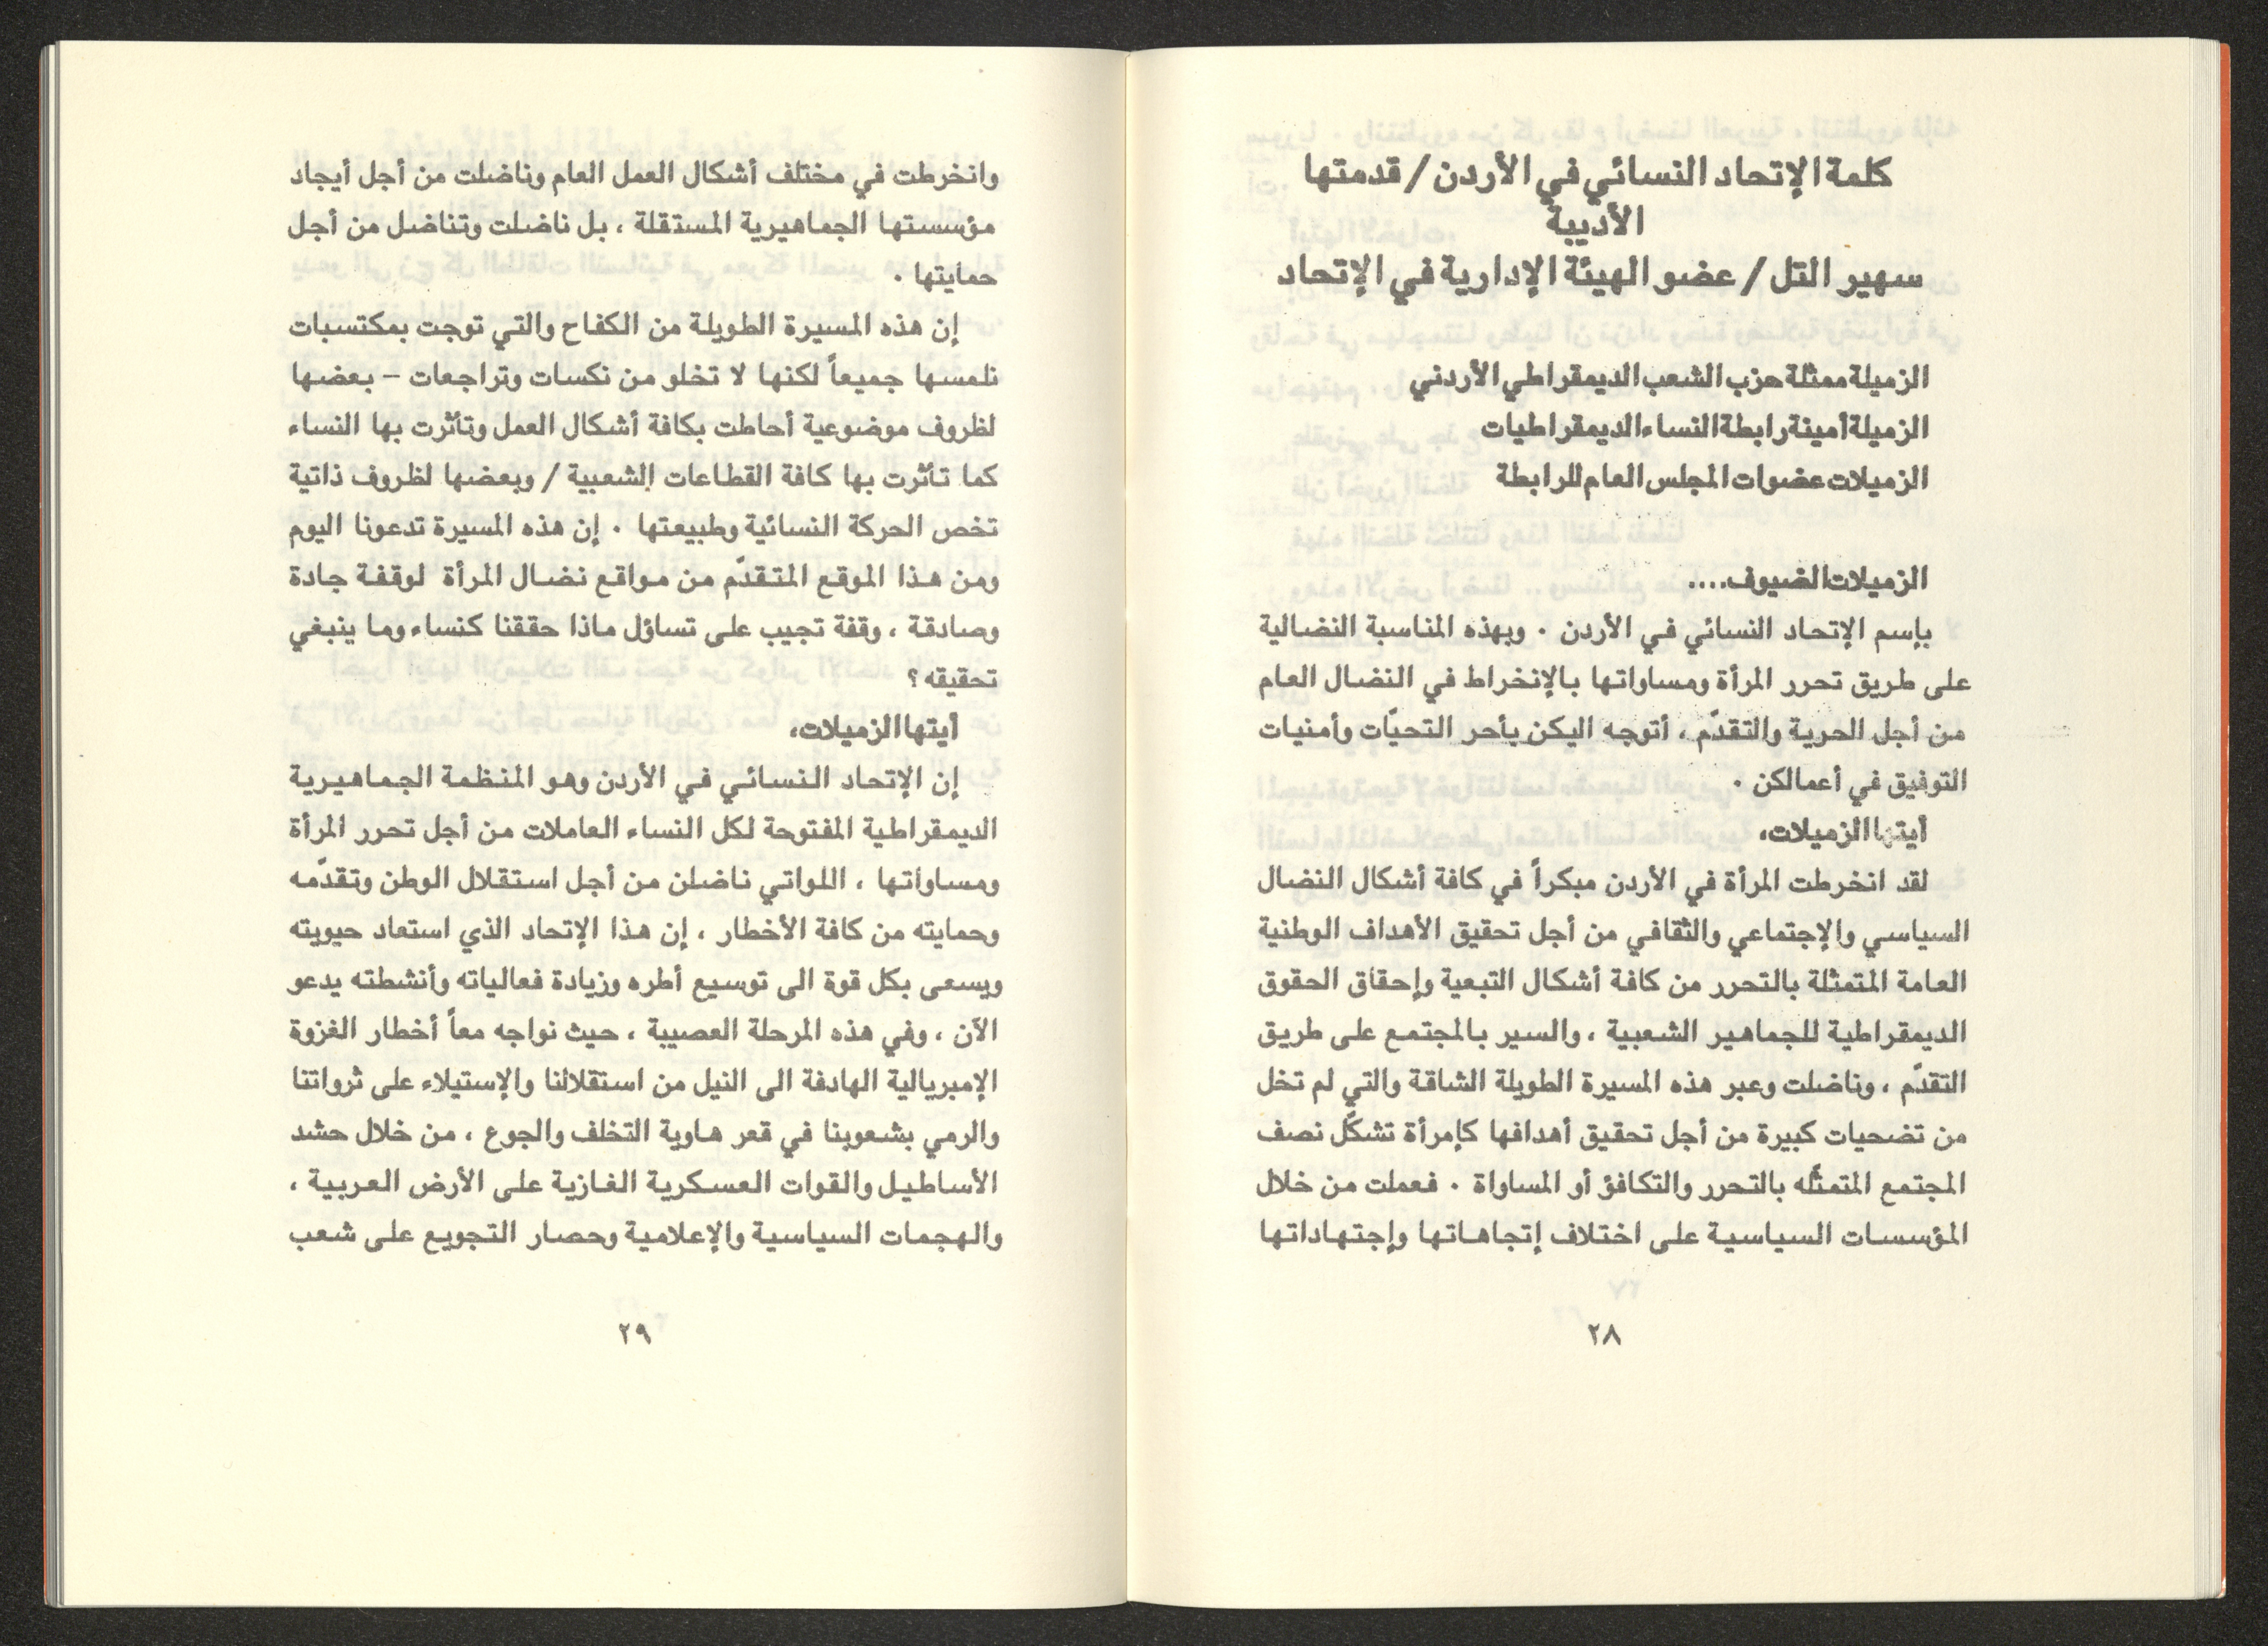 كلمة الإتحاد النسائي في الأردن / قدمتها
الأديبة
سهير التل / عضو الهيئة الإدارية في الإتحاد
الزميلة ممثلة حزب الشعب الديمقراطي الأردني
الزميلة أمينة رابطة النساء الديمقراطيات
الزميلات عضوات المجلس العام للرابطة
الزميلات الضيوف....
بإسم الإتحاد النسائي في الأردن . وبهذه المناسبة النضالية
على طريق تحرر المرأة ومساواتها بالإنخراط في النضال العام
من أجل الحرية والتقدّم ، أتوجه اليكن بأحر التحيّات وأمنيات
التوفيق في أعمالكن .
أيتها الزميلات،
لقد انخرطت المرأة في الأردن مبكراً في كافة أشكال النضال
السياسي والإجتماعي والثقافي من أجل تحقيق الأهداف الوطنية
العامة المتمثلة بالتحرر من كافة أشكال التبعية وإحقاق الحقوق
الديمقراطية للجماهير الشعبية ، والسير بالمجتمع على طريق
التقدّم ، وناضلت وعبر هذه المسيرة الطويلة الشاقة والتي لم تخل
من تضحيات كبيرة من أجل تحقيق أهدافها كإمرأة تشكّل نصف
المجتمع المتمثّله بالتحرر والتكافؤ أو المساواة . فعملت من خلال
المؤسسات السياسية على اختلاف إتجاهاتها وإجتهاداتها
٢٨
وانخرطت في مختلف أشكال العمل العام وناضلت من أجل أيجاد
مؤسستها الجماهيرية المستقلة ، بل ناضلت وتناضل من أجل
حمايتها .
إن هذه المسيرة الطويلة من الكفاح والتي توجت بمكتسبات
نلمسها جميعاً لكنها لا تخلو من نكسات وتراجعات – بعضها
لظروف موضوعية أحاطت بكافة أشكال العمل وتأثرت بها النساء
كما تأثرت بها كافة القطاعات الشعبية / وبعضها لظروف ذاتية
تخص الحركة النسائية وطبيعتها . إن هذه المسيرة تدعونا اليوم
ومن هذا الموقع المتقدّم من مواقع نضال المرأة لوقفة جادة
وصادقة ، وقفة تجيب على تساؤل ماذا حققنا كنساء وما ينبغي
تحقيقه ؟
أيتها الزميلات،
إن الإتحاد النسائي في الأردن وهو المنظمة الجماهيرية
الديمقراطية المفتوحة لكل النساء العاملات من أجل تحرر المرأة
ومساواتها ، اللواتي ناضلن من أجل استقلال الوطن وتقدّمه
وحمايته من كافة الأخطار ، إن هذا الإتحاد الذي استعاد حيويته
ويسعى بكل قوة الى توسيع أطره وزيادة فعالياته وأنشطته يدعو
الآن ، وفي هذه المرحلة العصيبة ، حيث نواجه معاً أخطار الغزوة
الإمبريالية الهادفة الى النيل من استقلالنا والإستيلاء على ثرواتنا
والرمي بشعوبنا في قعر هاوية التخلف والجوع ، من خلال حشد
الأساطيل والقوات العسكرية الغازية على الأرض العربية ،
والهجمات السياسية والإعلامية وحصار التجويع على شعب
٢٩